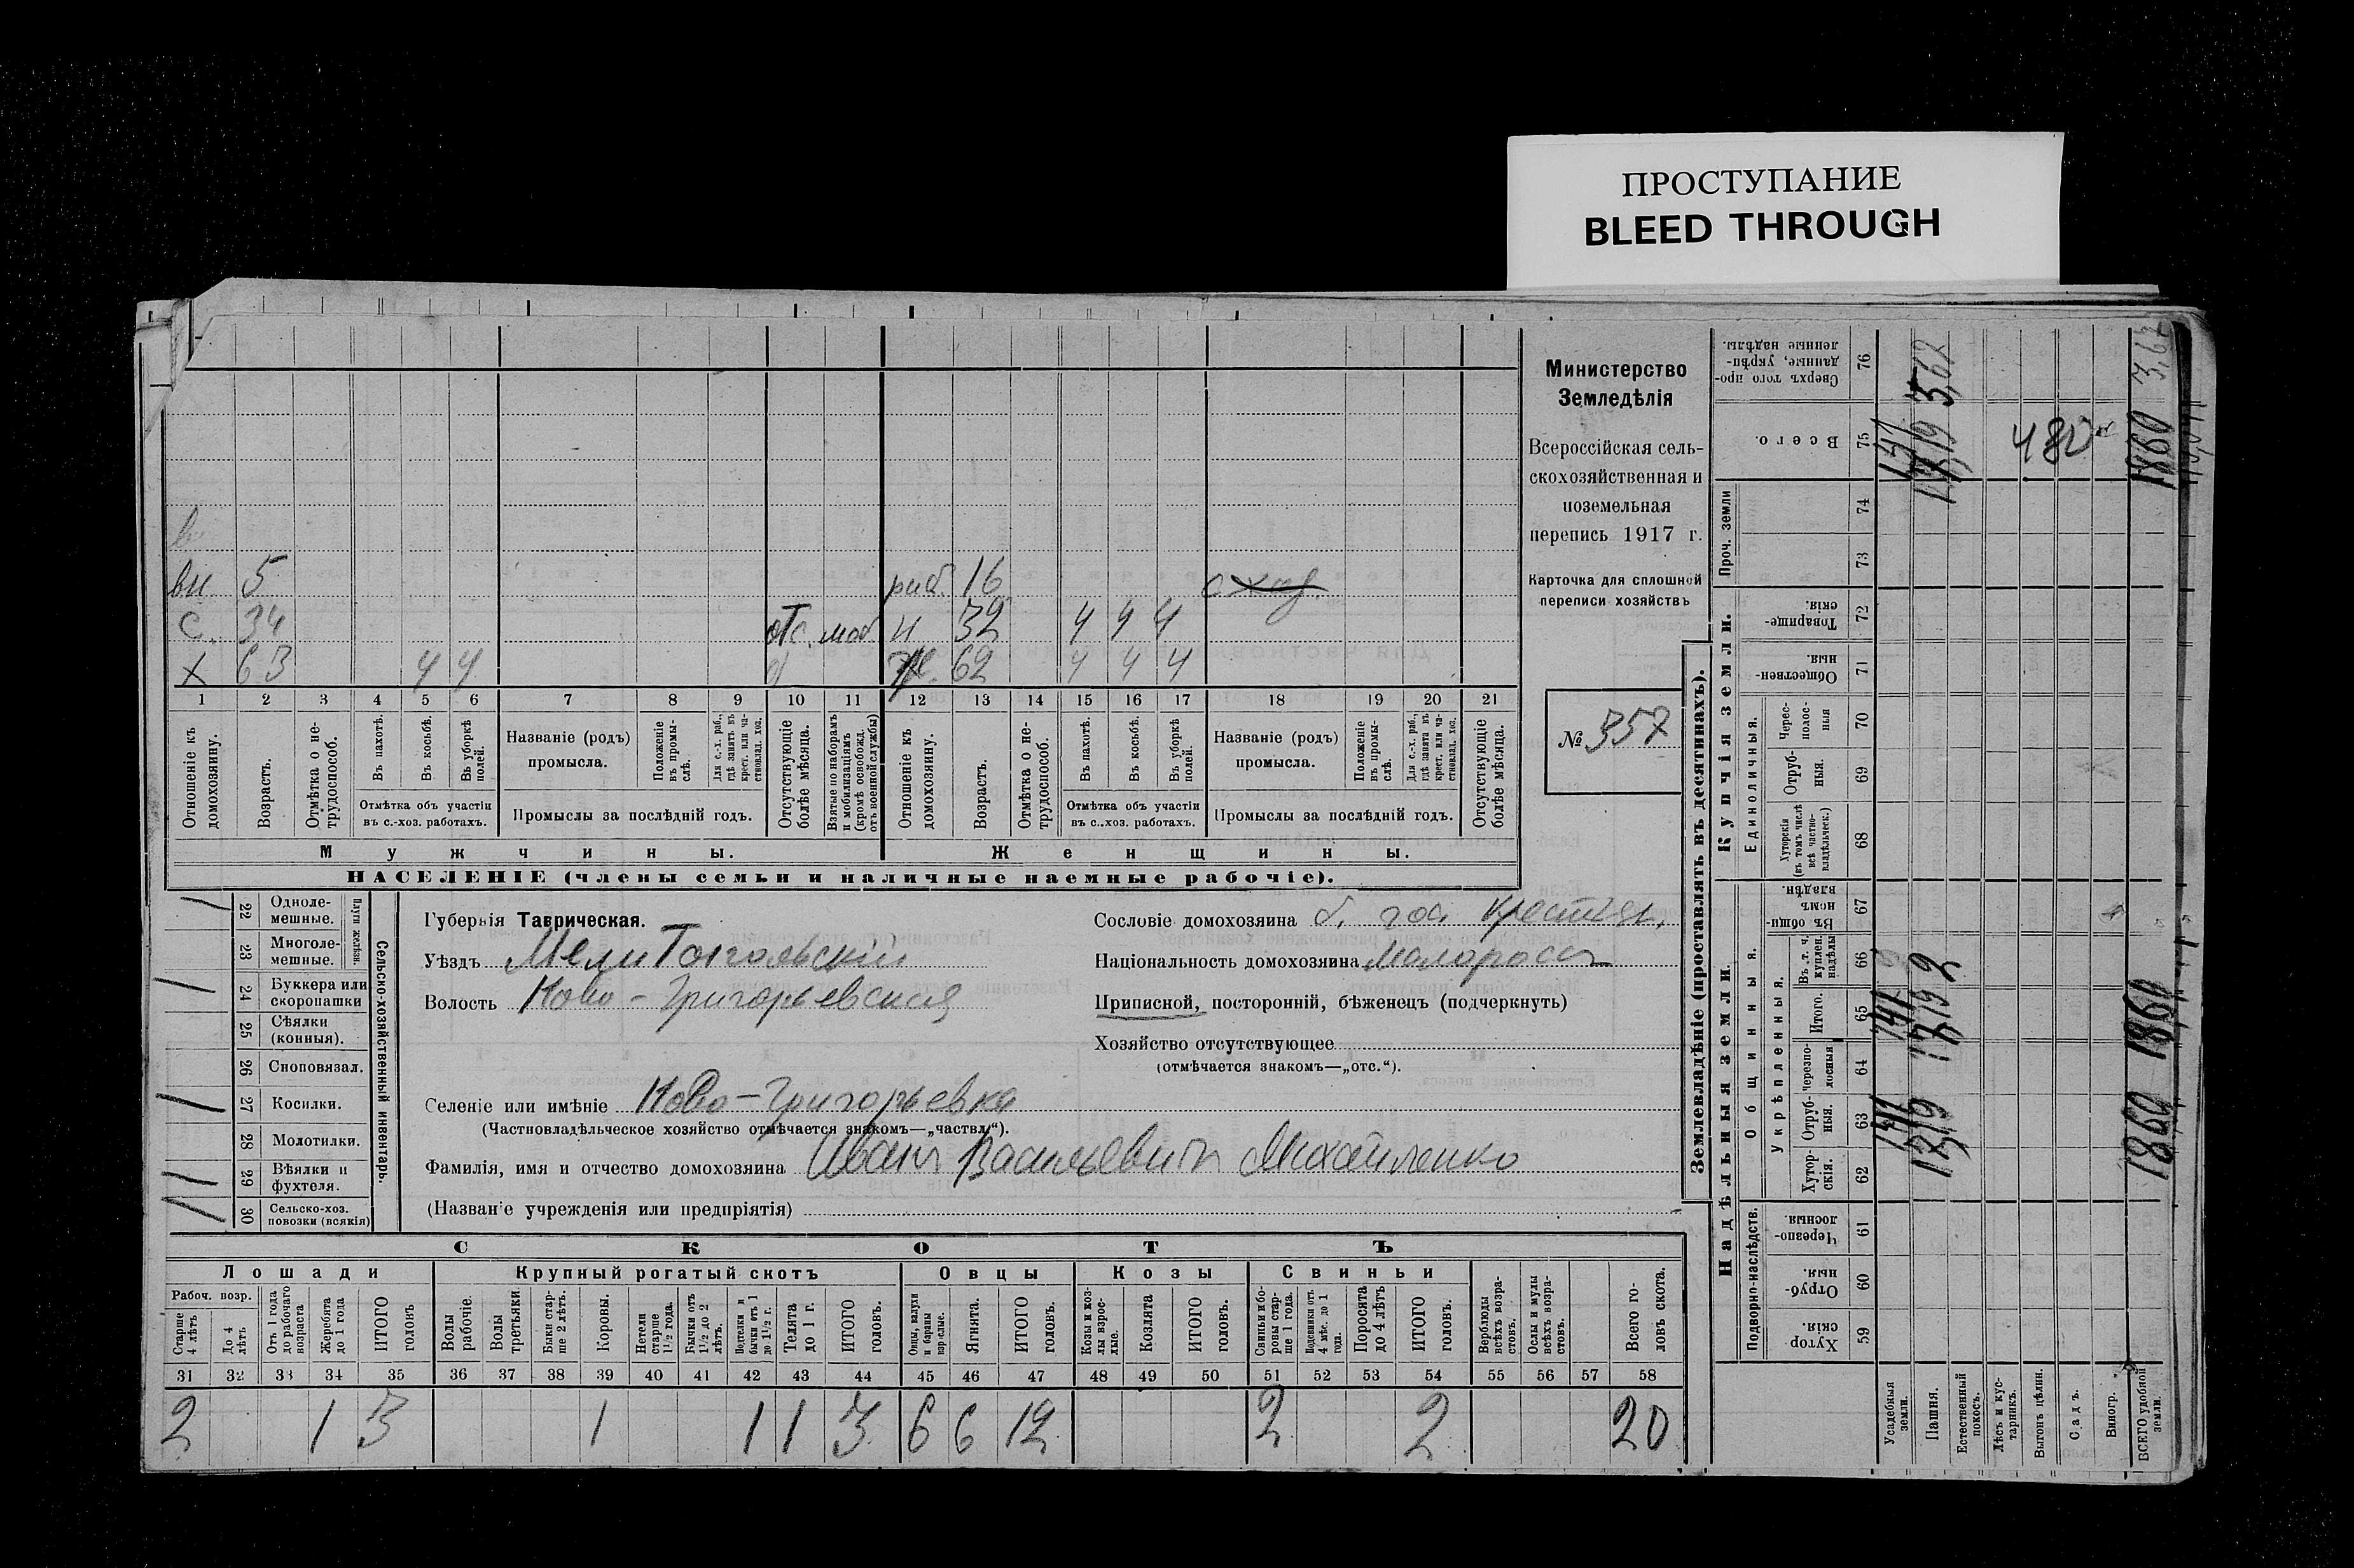 ПРОСТУПАНИЕ
BLEED THROUGH
Министерство
Земледѣлія
Всероссійская сель-
скохозяйственная и
поземельная
перепись 1917 г.
Карточка для сплошной
переписи хозяйствъ
№ 357
вн 5 раб. 16
с. 34 отс. моб. н 32 4 4 4
х 63 4 4 ж. 62 4 4 4
1 2 3 4 5 6 7 8 9 10 11 12 13 14 15 16 17 18 19 20 21
Отношеніе къ домохозяину.
Возрастъ.
Отмѣтка о не-трудоспособ.
Въ пахотѣ.
Въ косьбѣ.
Въ уборкѣ полей.
Отмѣтка объ участіи
въ с.-хоз. работахъ.
Названіе (родъ)
промысла.
Положеніе въ промы-слѣ.
Для с.-х. раб., гдѣ занятъ въ крест. или ча-стновлад. хоз.
Промыслы за послѣдній годъ.
Отсутствующіе болѣе мѣсяца.
Взятые по наборамъ и мобилизаціямъ (кромѣ освобожд. отъ военной службы)
Отношеніе къ домохозяину.
Возрастъ.
Отмѣтка о не-трудоспособ.
Въ пахотѣ.
Въ косьбѣ.
Въ уборкѣ полей.
Отмѣтка объ участіи
въ с.-хоз. работахъ.
Названіе (родъ)
промысла.
Положеніе въ промы-слѣ.
Для с.-х. раб., гдѣ занята въ крест. или ча-стновлад. хоз.
Промыслы за послѣдній годъ.
Отсутствующіе болѣе мѣсяца.
Мужчины. Женщины.
НАСЕЛЕНІЕ (члены семьи и наличные наемные рабочіе).
Сельско-хозяйственный инвентарь.
Плуги желѣзн.
22 Одноле-мешные.
23 Многоле-мешные.
24 Буккера или скоропашки
25 Сѣялки (конныя).
26 Сноповязал.
27 Косилки.
28 Молотилки.
29 Вѣялки и фухтеля.
30 Сельско-хоз. повозки (всякія)
Губернія Таврическая.
Уѣздъ Мелитопольскій
Волость Ново-Григорьевская
Сословіе домохозяина б. гос. крестья.
Національность домохозяина малороссъ
Приписной, посторонній, бѣженецъ (подчеркнуть)
Хозяйство отсутствующее
(отмѣчается знакомъ—„отс.“).
Селеніе или имѣніе Ново-Григорьевка
(Частновладѣльческое хозяйство отмѣчается знакомъ—„частвл.“).
Фамилія, имя и отчество домохозяина Иванъ Васильевичъ Михайленко
(Названіе учрежденія или предпріятія)
СКОТЪ
Лошади Крупный рогатый скотъ Овцы Козы Свиньи
Рабоч. возр.
Старше 4 лѣтъ
До 4 лѣтъ
Отъ 1 года до рабочаго возраста
Жеребята до 1 года
ИТОГО головъ
Волы рабочіе.
Волы третьяки.
Быки стар-ше 2 лѣтъ.
Коровы.
Нетели старше 1½ года.
Бычки отъ 1½ до 2 лѣтъ.
Телята до 1 г.
ИТОГО головъ.
Ягнята.
ИТОГО головъ.
Козы и коз-лы взрос-лые.
Козлята
ИТОГО головъ.
Свиньи и бо-ровы стар-ше 1 года.
ИТОГО головъ.
Верблюды всѣхъ возра-стовъ.
Ослы и мулы всѣхъ возра-стовъ.
Всего го-ловъ скота.
31 32 33 34 35 36 37 38 39 40 41 42 43 44 45 46 47 48 49 50 51 52 53 54 55 56 57 58
2 1 3 1 1 1 3 6 6 12 2 2 20
Землевладѣніе (проставлять въ десятинахъ).
Надѣльныя земли. Купчія земли.
Подворно-наслѣдств.
Общинныя.
Укрѣпленныя.
Единоличныя.
Проч. земли
59 Хутор-скія.
60 Отруб-ныя.
61 Черезпо-лосныя.
62 Хутор-скія.
63 Отруб-ныя.
64 Черезпо-лосныя
65 Итого.
66 Въ т. ч. куплен. надѣлы
67 Въ общи-номъ владѣн.
68 Хуторскія (въ томъ числѣ всѣ частно-владѣльческ.)
69 Отруб-ныя.
70 Черес-полос-ныя
71 Обществен-ныя.
72 Товарище-скія.
73
74
75 Всего.
76 Сверхъ того про-данные, укрѣп-ленные надѣлы.
Усадебныя земли.
Пашня. 3,62
Естественный покосъ.
Лѣсъ и кус-тарникъ.
Выгонъ цѣлин. 480
Садъ.
Виногр.
ВСЕГО удобной земли. 1860 1860 1860 3,62